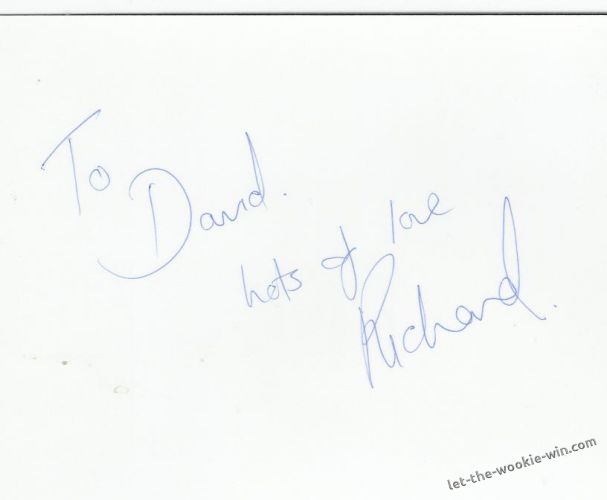 To David.
lots of love
Richard.
let-the-wookie-win.com